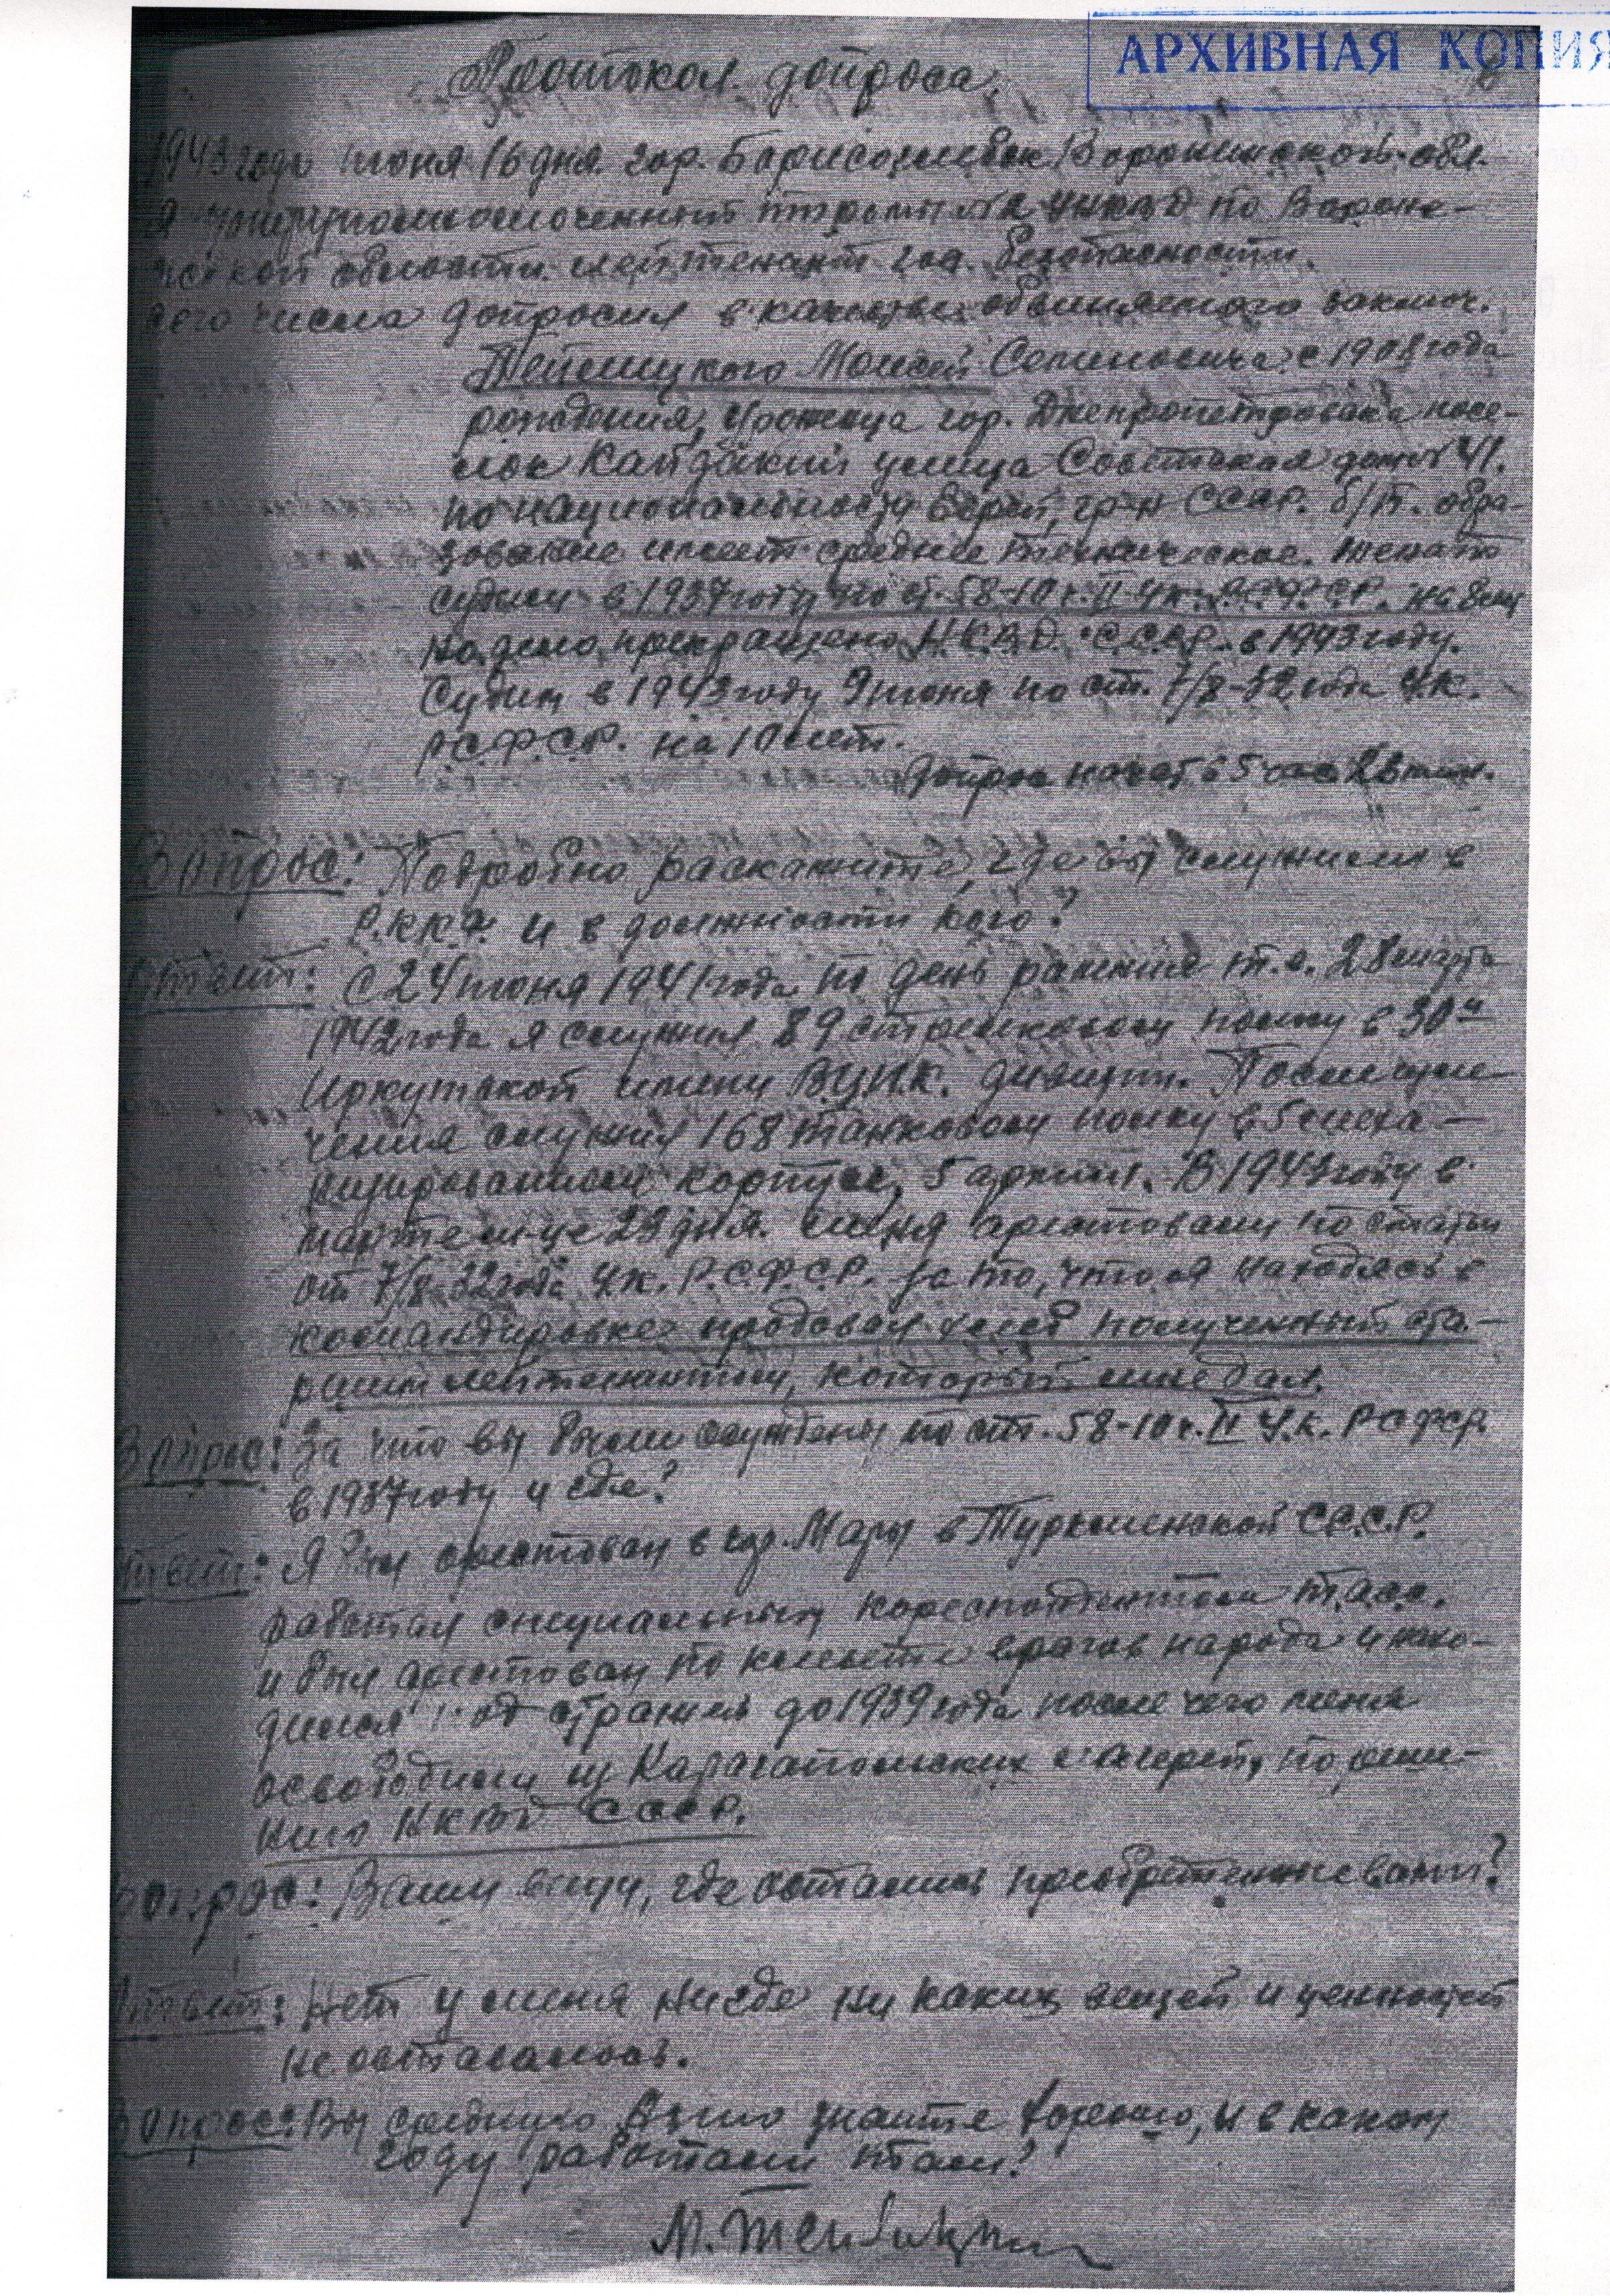 АРХИВНАЯ КОПИЯ
Протокол допроса.
1943 года июня 16 дня. гор. Борисоглебск Воронежской обл.
Я УНКВД по Вороне-
жской области лейтенант гос. безопасности.
сего числа допросил в качестве обвиняемого заключ.
Моисей Семеновича с 1908 года
рождения, урожнца гор. Днепропетровска посе-
лок Кайдакий улица Советская дом № 41.
по национальности Еврей, гр-н СССР. б/п. обра-
зование имеет среднее техническое. женат
судим в 1937 году по ст. 58-10 ч. II У.К. Р.С.Ф.С.Р. на 8 лет
но дело прекращено Н.К.В.Д. С.С.С.Р. в 1943 году.
Судим в 1943 году 9 июня по ст. 7/8-32 года У.К.
Р.С.Ф.С.Р. на 10 лет.
Допрос начат в 5 час мин.
Вопрос: Подробно раскажите, где вы служили в
Р.К.К.А. и в должности кого?
Ответ: С 24 июня 1941 года по день ранения т.е. 28 марта
1942 года я служил 89 стрелковом полку в 30й
Иркутской имени В.Ц.И.К. дивизии. После изле
чения служил 168 танковом полку в 5 меха-
низированном корпусе, 5 армии. В 1943 году в
марте м-це 29 дня. меня арестовали по статьи
от 7/8-32 года У.К. Р.С.Ф.С.Р. за то, что я находясь в
командировке продавал хлеб полученный ста-
ршим лейтенантом, который мне дал.
Вопрос: За что вы были осуждены по ст. 58-10 ч. II У.К. РСФСР.
в 1937 году и где?
Ответ: Я был арестован в гор. Мары в Туркменской С.С.С.Р.
работал специальным кореспондентом Т.А.С.С.
и был арестован по клевете врагов народа и нахо-
дился под стражей до 1939 года после чего меня
освободили из лагерей, по реше-
нию НКВД СССР.
Вопрос: Ваши вещи, где остались преобретенные вами?
Ответ: Нет у меня нигде ни каких вещей и ценностей
не оставалось.
Вопрос: Вы среднюю Азию знаете хорошо, и в каком
году работали там?